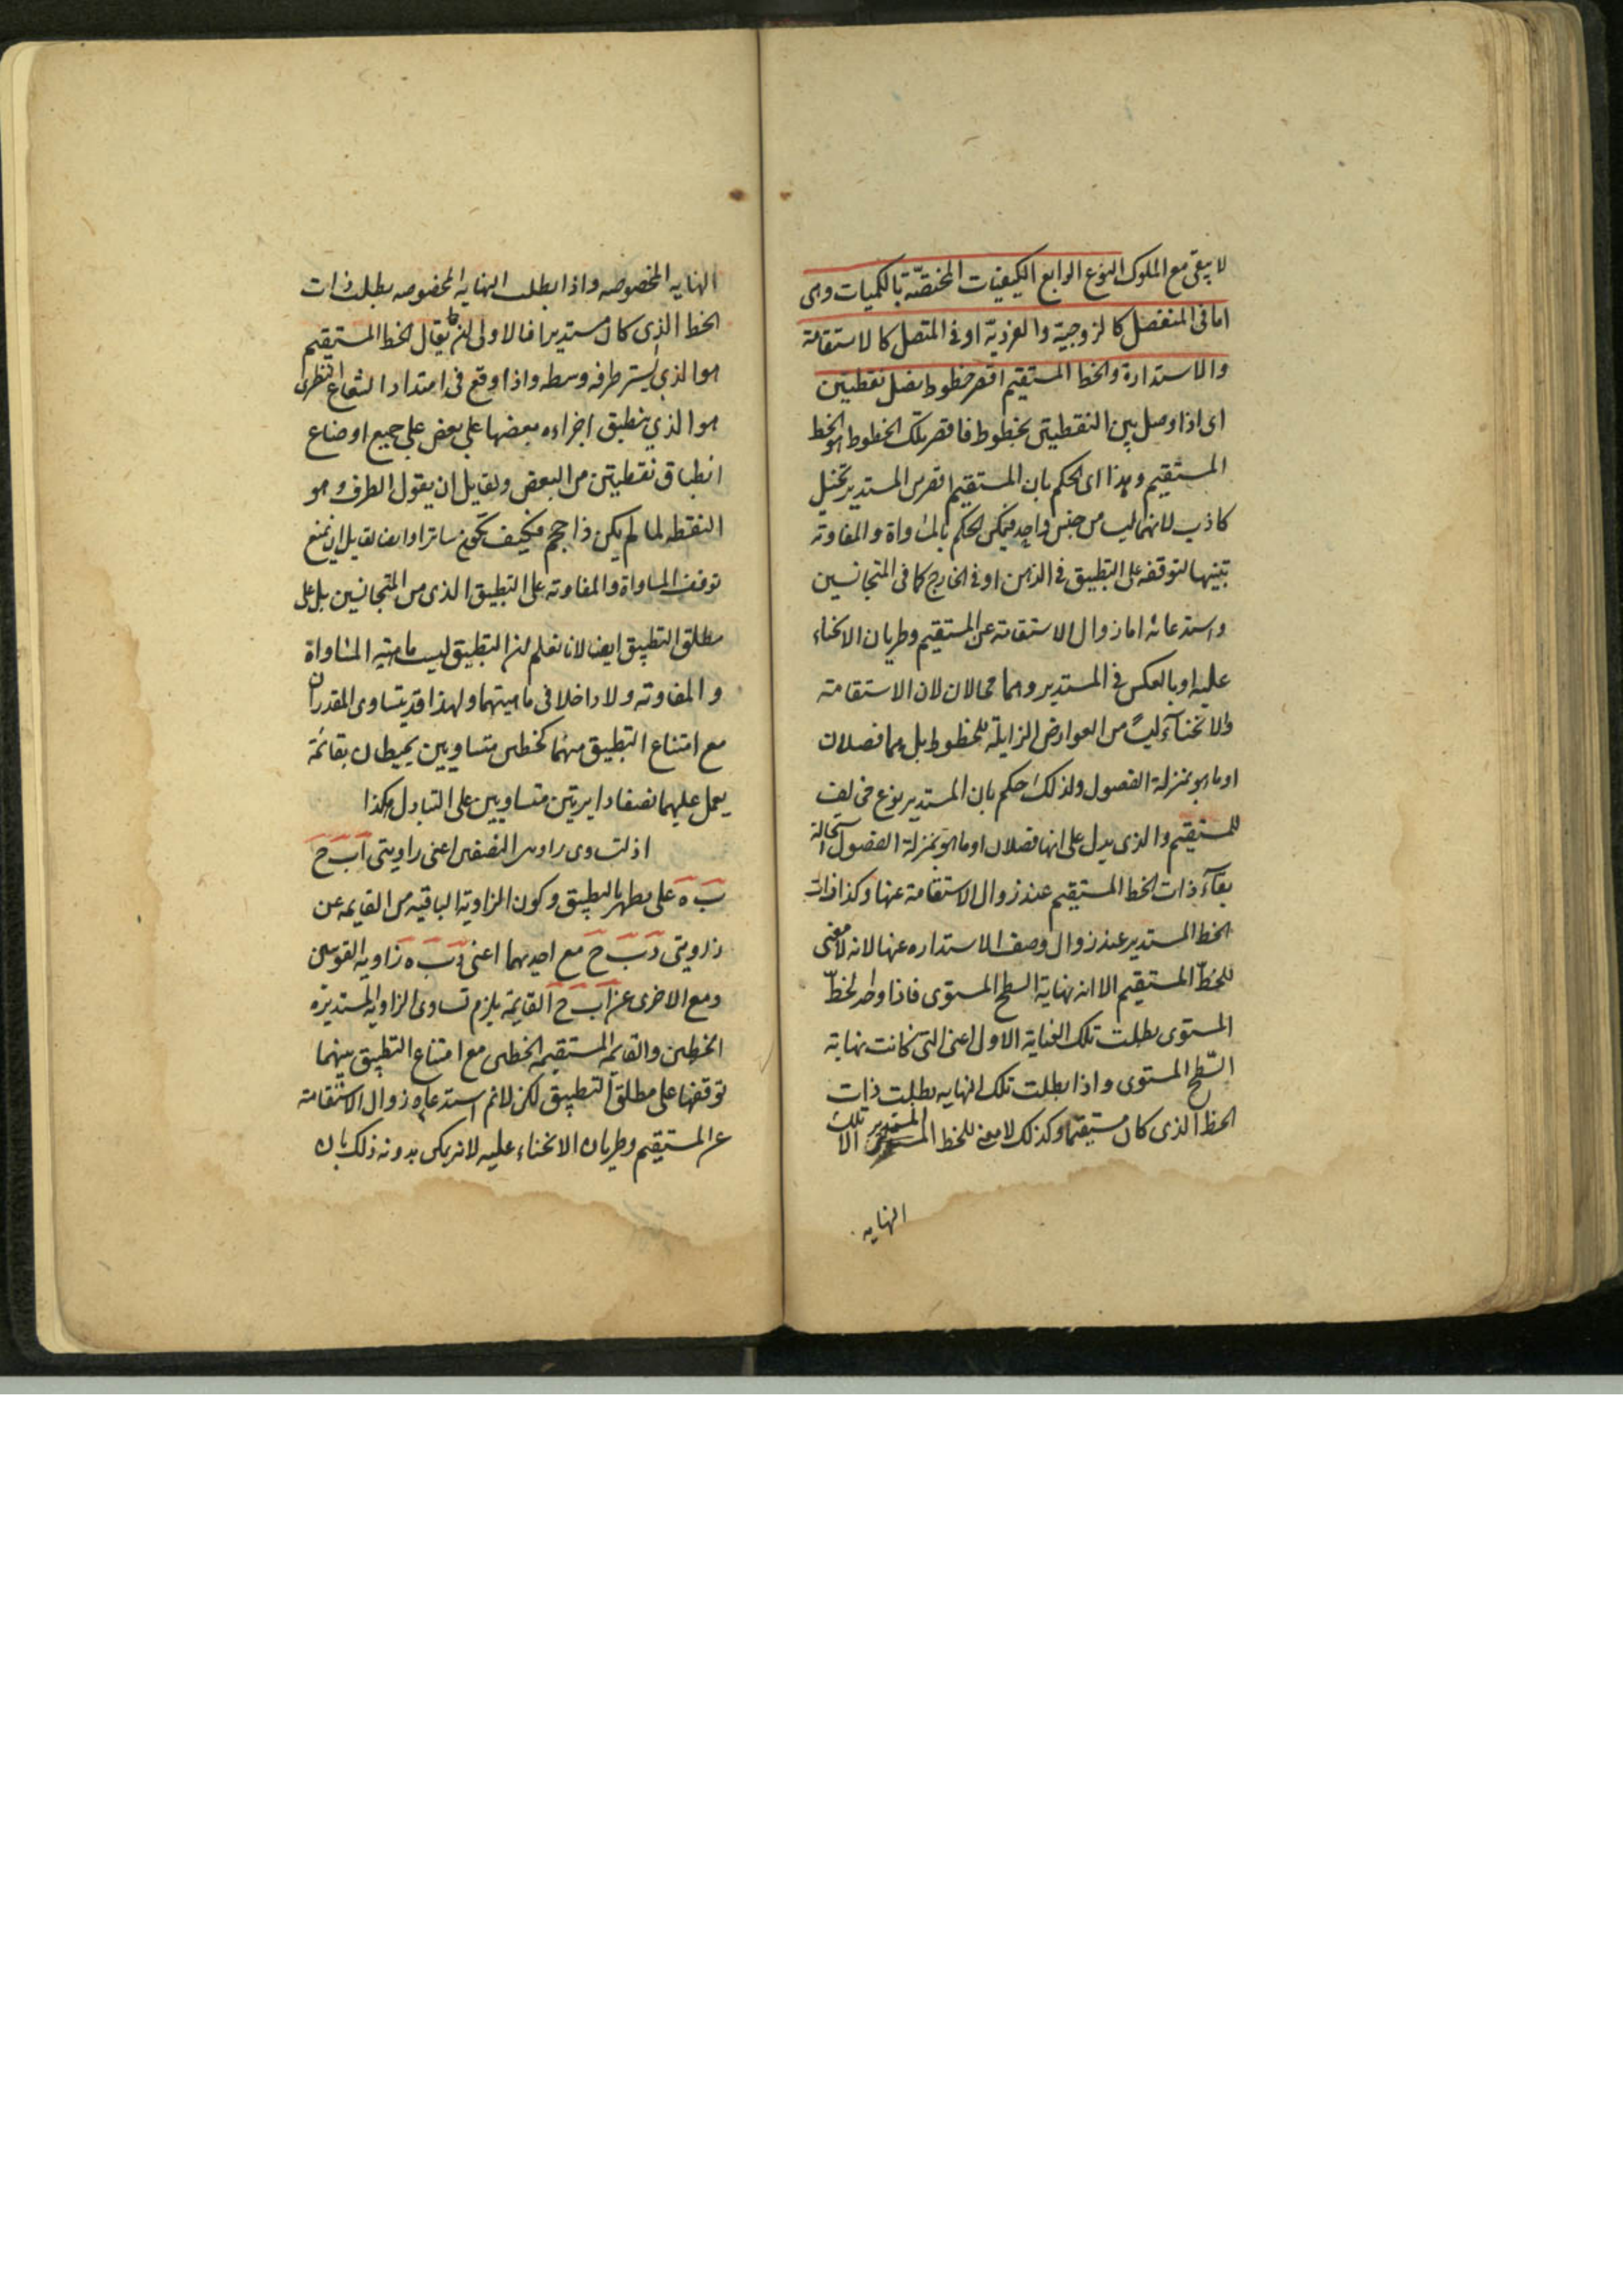 لا يبقى مع الملوك النوع الرابع الكيفيات المختصّة بالكميات وهى
اما فى المنفصل كالزوجية والفردية او فى المتصل كالاستقامة
والاستدارة والخط المستقيم اقصر خطوط تصل نقطتين
اى اذا وصل بين النقطتين بخطوط فاقصر تلك الخطوط هو الخط
المستقيم وهذا اى الحكم بان المستقيم اقصر من المستدير تخيل
كاذب لانهما ليسا من جنس واحد فيمكن الحكم بالمساواة والمفاوتة
بينهما لتوقفه على التطبيق فى الذهن او فى الخارج كما فى المتجانسين
واستدعائه اما زوال الاستقامة عن المستقيم وطريان الانحناء
عليه او بالعكس فى المستدير وهما محالان لان الاستقامة
والانحناء ليسا من العوارض الزايلة للخطوط بل هما فصلان
او ما هو بمنزلة الفصول ولذلك حكم بان المستدير نوع مخالف
للمستقيم والذى يدل على انها فصلان او ما هو بمنزلة الفصول استحالة
بقآء ذات الخط المستقيم عند زوال الاستقامة عنها وكذا ذات
الخط المستدير عند زوال وصف الاستداره عنها لانه لا معنى
للخطّ المستقيم الا انه نهاية السطح المستوى فاذا لخطّ
المستوى بطلت تلك الغاية الاول اعنى التى كانت نهاية
السّطح المستوى واذا بطلت تلك النهايه بطلت ذات
الخط الذى كان مستقيما وكذلك لا معنى للخط المستدير الا تلك
النهايه
النهايه المخصوصه واذا بطلت النهايه المخصوصه بطلت ذات
الخط الذى كان مستديرا فالاولى ان يقال الخط المستقيم
هو الذى يستر طرفه وسطه واذا وقع فى امتداد الشعاع النظرى
هو الذي ينطبق اجزاءه بعضها على بعض على جميع اوضاع
انطباق نقطتين من البعض ولقايل ان يقول الطرف وهو
النقطه لما لم يكن ذا حجم فكيف تكون ساترا وايضا لقايل ان يمنع
توقف المساواة والمفاوته على التطبيق الذى من المتجانسين بل على
مطلق التطبيق ايضا لانا نعلم ان التطبيق ليست ماهية المساواة
والمفاوته ولا داخلا فى ماهيتهما ولهذا قد يتساوى المقدران
مع امتناع التطبيق منهما كخطين متساويين يحيطان بقائمة
يعمل عليهما نصفا دايرتين متساويين على التبادل هكذا
اذ لتساوى زاويتى النصفين اعنى زاويتى اب ح
ب ه على بطهر بالتطبيق وكون الزاوية الباقيه من القايمه عن
زاويتى د ب ح مع احديهما اعنى د ب ه زاويه القوسين
ومع الاخرى عن ا ب ح القايمة يلزم تساوى الزاويه المستديرة
الخطين والقايمه المستقيمه الخطين مع امتناع التطبيق بينهما
توقفها على مطلق التطبيق لكن لانم استدعاه زوال الاستقامة
عن المستقيم وطريان الانحناء عليه لانه يمكن بدونه ذلك بان